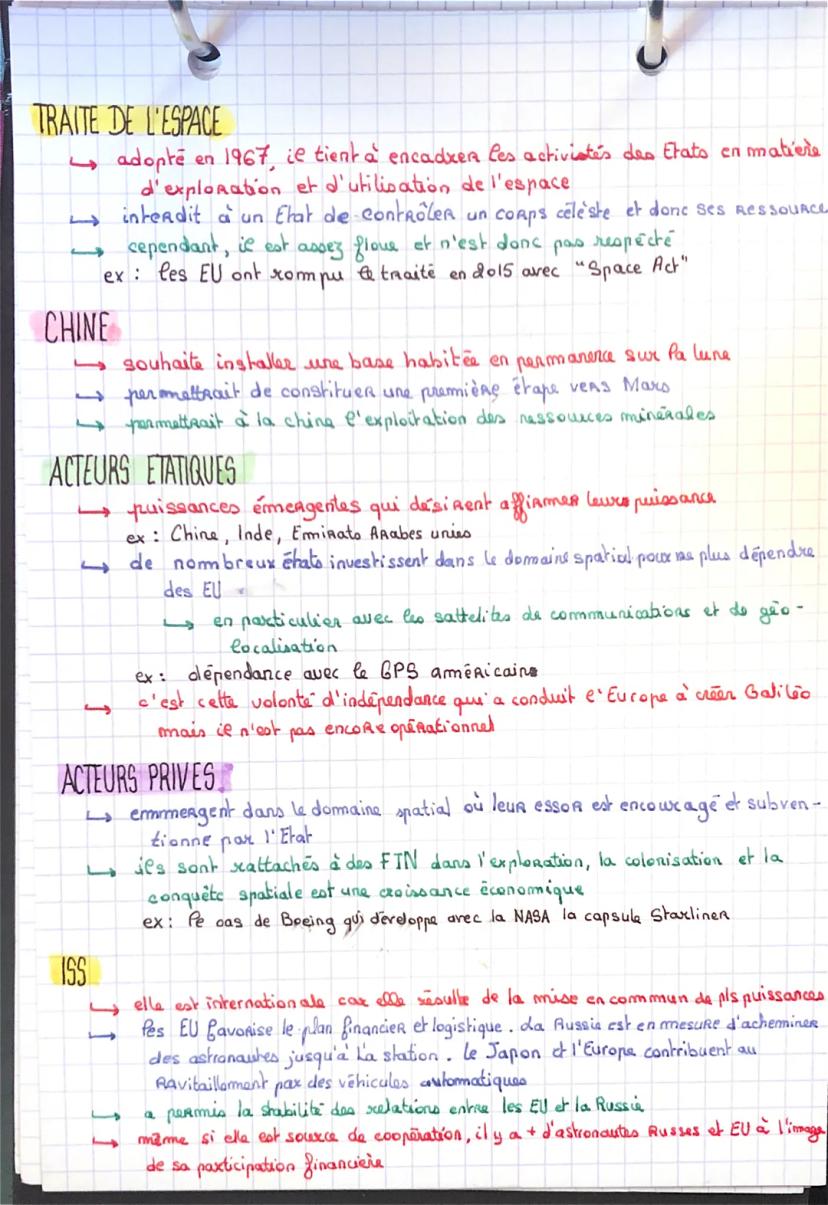 TRAITE DE L'ESPACE
↳ adopté en 1967, il tient à encadrer les activistés des Etats en matière
d'exploration et d'utilisation de l'espace
↳ interdit à un Etat de contrôler un corps célèste et donc ses RESSOURCE
↳ cependant, il est assez floue et n'est donc pas respécté
ex : les EU ont rompu le traité en 2015 avec "Space Act"
CHINE
↳ souhaite installer une base habitée en permanence sur la lune
↳ permettrait de constituer une première étape vers Mars
↳ permettrait à la chine l'exploitation des ressources minérales
ACTEURS ETATIQUES
↳ puissances émergentes qui désirent affirmer leurs puissance
ex : Chine, Inde, Emirats Arabes unies
↳ de nombreux états investissent dans le domaine spatial pour ne plus dépendre
des EU
↳ en particulier avec les sattelites de communications et de géo-
localisation
ex : dépendance avec le GPS américains
↳ c'est cette volonté d'indépendance qui a conduit l'Europe à créer Galiléo
mais il n'est pas encore opérationnel
ACTEURS PRIVES :
↳ emmergent dans le domaine spatial où leur essor est encouragé et subven-
tionne par l'Etat
↳ ils sont rattachés à des FTN dans l'exploration, la colonisation et la
conquête spatiale est une croissance économique
ex : le cas de Boeing qui développe avec la NASA la capsule Starliner
ISS
↳ elle est internationale car elle résulte de la mise en commun de pls puissances
↳ les EU favorise le plan financier et logistique. La Russie est en mesure d'acheminer
des astronautes jusqu'à la station. Le Japon et l'Europe contribuent au
Ravitaillment par des véhicules automatiques
↳ a permis la stabilité des relations entre les EU et la Russie
↳ même si elle est source de coopération, il y a + d'astronautes Russes et EU à l'image
de sa participation financière